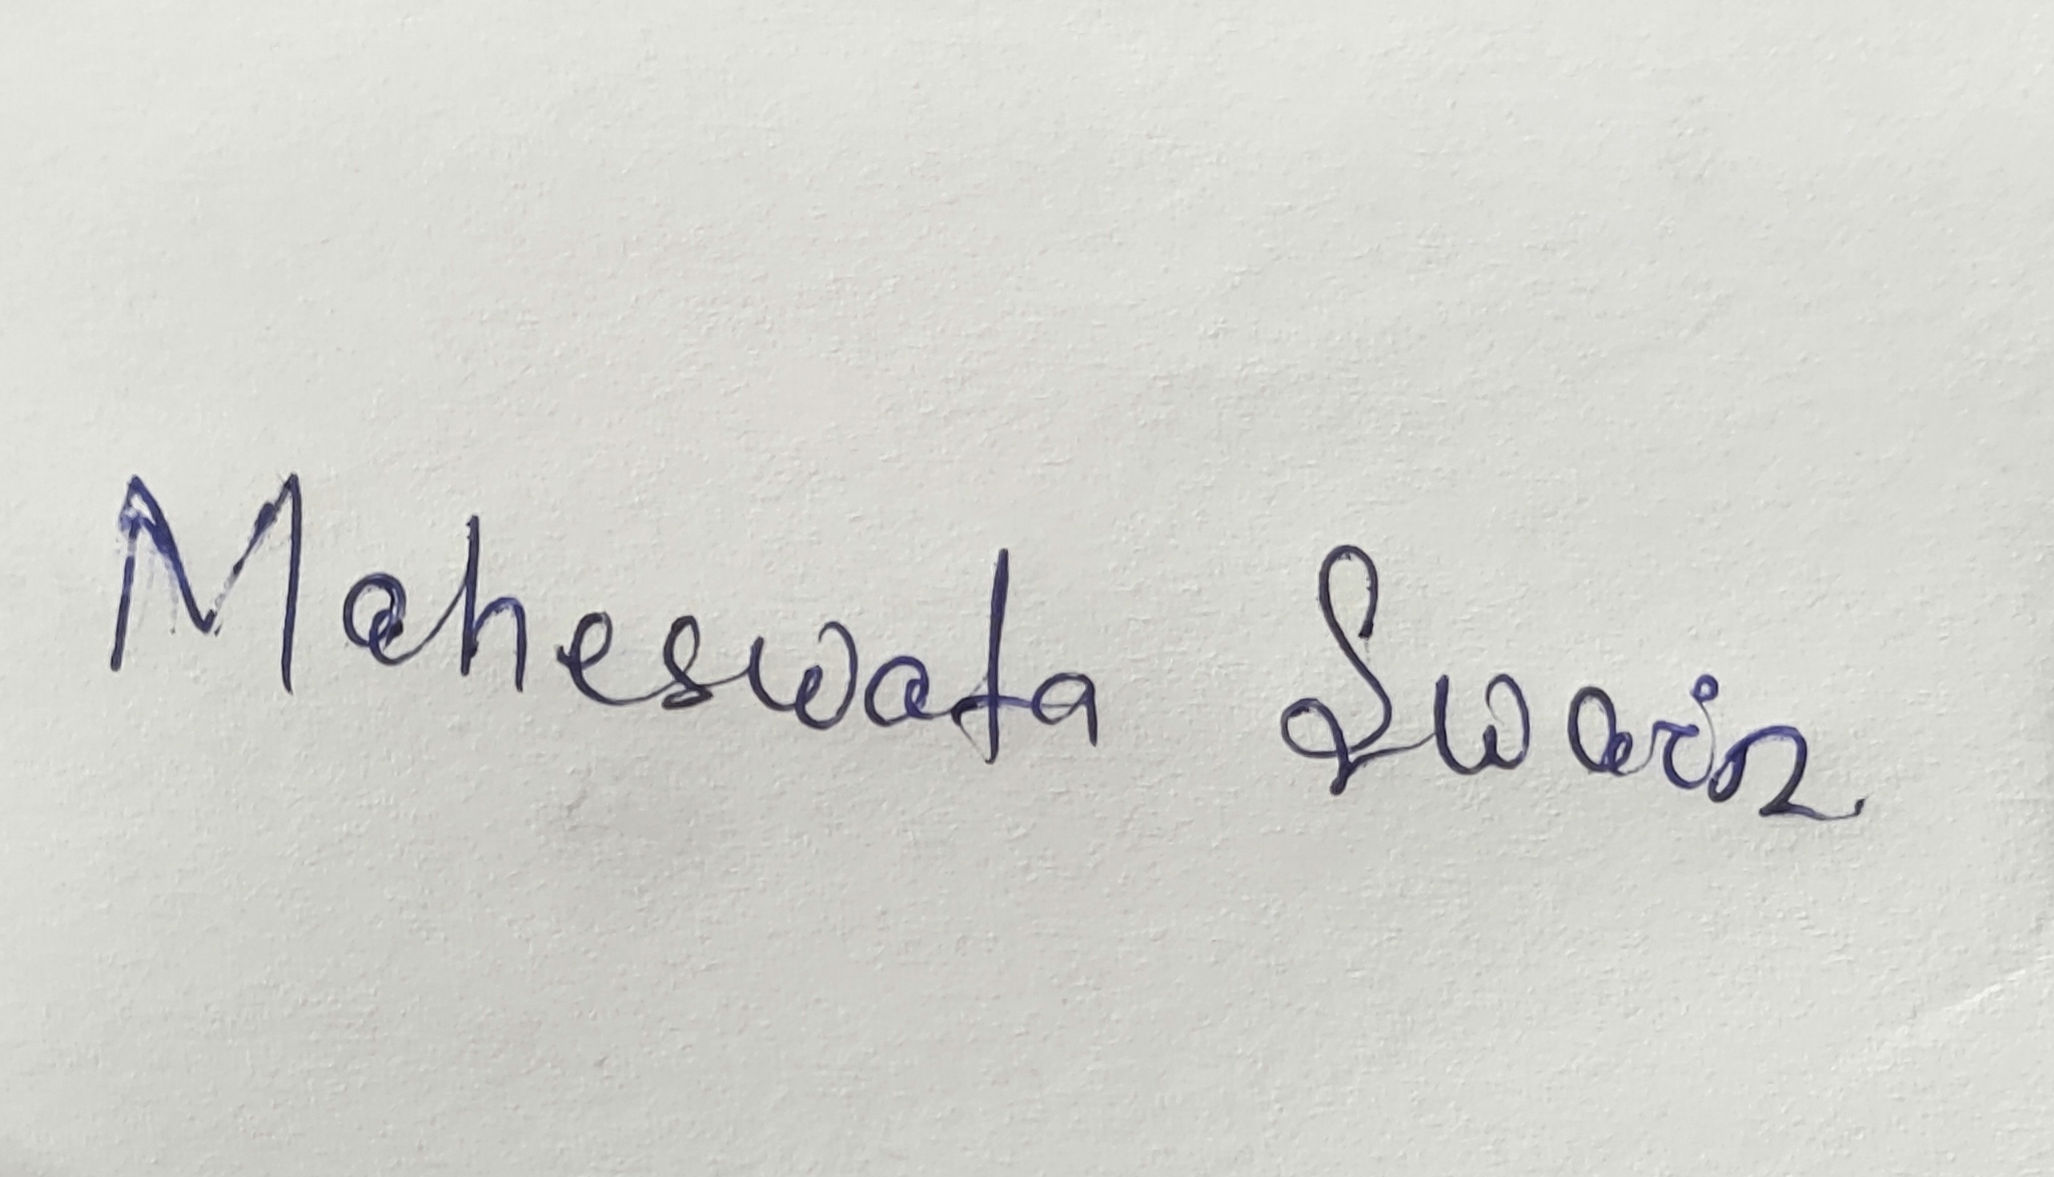 Maheswata Swain